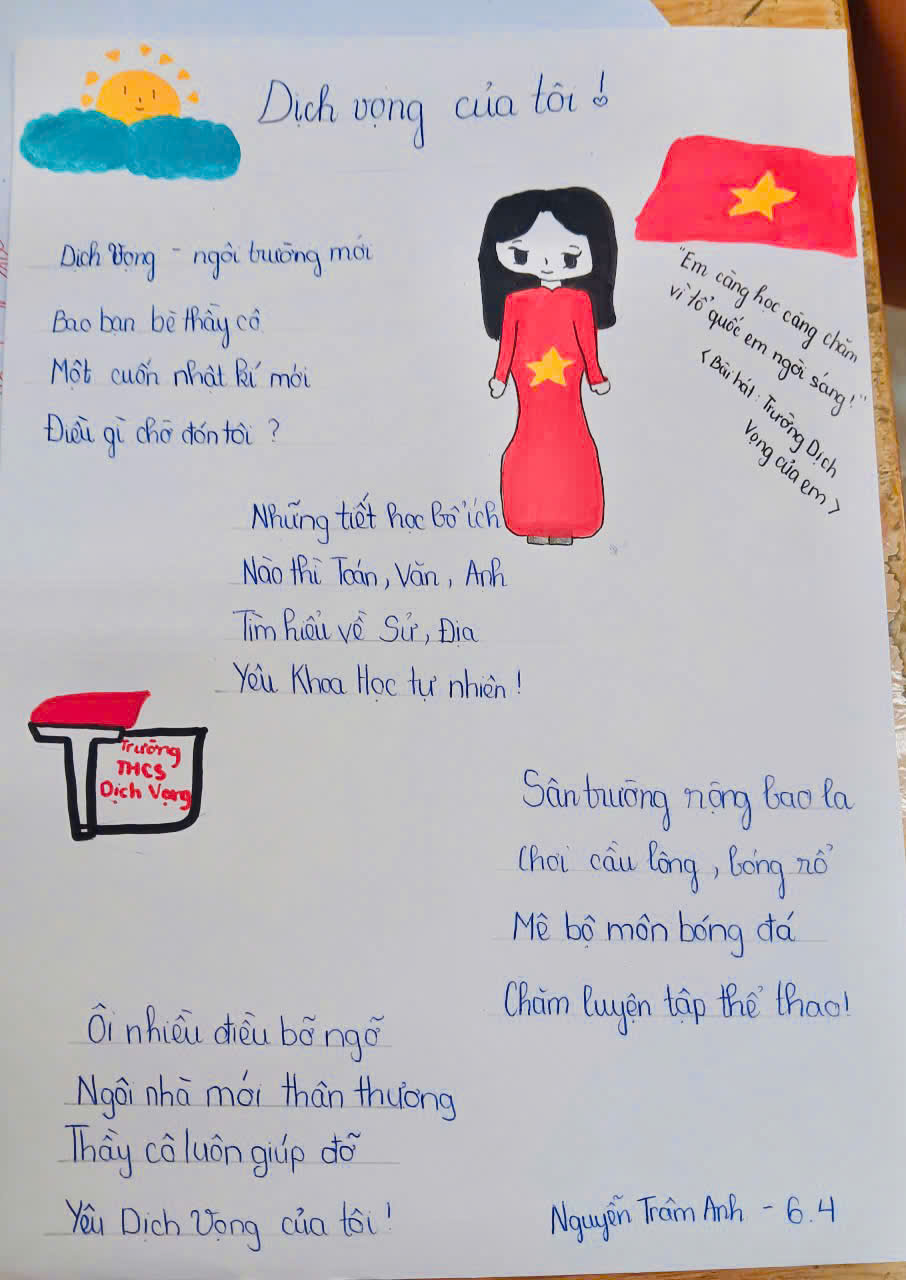 Dịch vọng của tôi!
Dịch Vọng - ngôi trường mới
Bao bạn bè thầy cô
Một cuốn nhật kí mới
Điều gì chờ đón tôi ?
"Em càng học càng chăm
vì tổ quốc em ngời sáng!"
<Bài hát: Trường Dịch
Vọng của em>
Những tiết học bổ ích
Nào thì Toán, Văn, Anh
Tìm hiểu về Sử, Địa
Yêu Khoa Học tự nhiên !
Trường
THCS
Dịch Vọng
Sân trường rộng bao la
Chơi cầu lông, bóng rổ
Mê bộ môn bóng đá
Chăm luyện tập thể thao!
Ôi nhiều điều bỡ ngỡ
Ngôi nhà mới thân thương
Thầy cô luôn giúp đỡ
Yêu Dịch Vọng của tôi!
Nguyễn Trâm Anh - 6.4